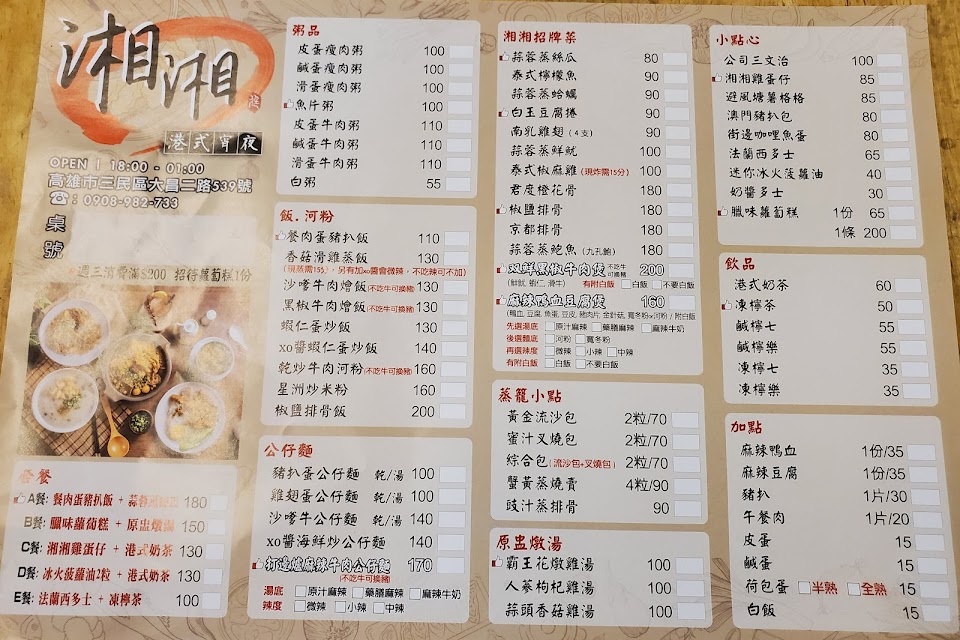 湘湘
港式宵夜
OPEN | 18:00 - 01:00
高雄市三民區大昌二路539號
☎：0908-982-733
桌號
週三消費滿$200 招待蘿蔔糕1份
套餐
A餐: 餐肉蛋豬扒飯 + 蒜蓉 180
B餐: 臘味蘿蔔糕 + 原盅燉湯 150
C餐: 湘湘雞蛋仔 + 港式奶茶 130
D餐: 冰火菠蘿油2粒 + 港式奶茶 130
E餐: 法蘭西多士 + 凍檸茶 100
粥品
皮蛋瘦肉粥 100
鹹蛋瘦肉粥 100
滑蛋瘦肉粥 100
魚片粥 100
皮蛋牛肉粥 110
鹹蛋牛肉粥 110
滑蛋牛肉粥 110
白粥 55
飯.河粉
餐肉蛋豬扒飯 110
香菇滑雞蒸飯 130
(現蒸需15分, 另有加xo醬會微辣, 不吃辣可不加)
沙嗲牛肉燴飯(不吃牛可換豬) 130
黑椒牛肉燴飯(不吃牛可換豬) 130
蝦仁蛋炒飯 130
xo醬蝦仁蛋炒飯 140
乾炒牛肉河粉(不吃牛可換豬) 160
星洲炒米粉 160
椒鹽排骨飯 200
公仔麵
豬扒蛋公仔麵 乾/湯 100
雞翅蛋公仔麵 乾/湯 100
沙嗲牛公仔麵 乾/湯 140
xo醬海鮮炒公仔麵 140
打邊爐麻辣牛肉公仔麵 170
(不吃牛可換豬)
湯底 □原汁麻辣 □藥膳麻辣 □麻辣牛奶
辣度 □微辣 □小辣 □中辣
湘湘招牌菜
蒜蓉蒸絲瓜 80
泰式檸檬魚 90
蒜蓉蒸蛤蠣 90
白玉豆腐捲 90
南乳雞翅(4支) 90
蒜蓉蒸鮮魷 100
泰式椒麻雞(現炸需15分) 100
君度橙花骨 180
椒鹽排骨 180
京都排骨 180
蒜蓉蒸鮑魚(九孔鮑) 180
双鮮黑椒牛肉煲 不吃牛可換豬 200
(鮮魷, 蝦仁, 滑牛) 有附白飯 □白飯 □不要白飯
麻辣鴨血豆腐煲 160
(鴨血, 豆腐, 魚蛋, 豆皮, 豬肉片, 金針菇, 寬冬粉or河粉 / 附白飯)
先選湯底 □原汁麻辣 □藥膳麻辣 □麻辣牛奶
後選麵底 □河粉 □寬冬粉
再選辣度 □微辣 □小辣 □中辣
有附白飯 □白飯 □不要白飯
蒸籠小點
黃金流沙包 2粒/70
蜜汁叉燒包 2粒/70
綜合包(流沙包+叉燒包) 2粒/70
蟹黃蒸燒賣 4粒/90
豉汁蒸排骨 90
原盅燉湯
霸王花燉雞湯 100
人蔘枸杞雞湯 100
蒜頭香菇雞湯 100
小點心
公司三文治 100
湘湘雞蛋仔 85
避風塘薯格格 85
澳門豬扒包 80
街邊咖哩魚蛋 80
法蘭西多士 65
迷你冰火菠蘿油 40
奶醬多士 30
臘味蘿蔔糕 1份 65
1條 200
飲品
港式奶茶 60
凍檸茶 50
鹹檸七 55
鹹檸樂 55
凍檸七 35
凍檸樂 35
加點
麻辣鴨血 1份/35
麻辣豆腐 1份/35
豬扒 1片/30
午餐肉 1片/20
皮蛋 15
鹹蛋 15
荷包蛋 □半熟 □全熟 15
白飯 15